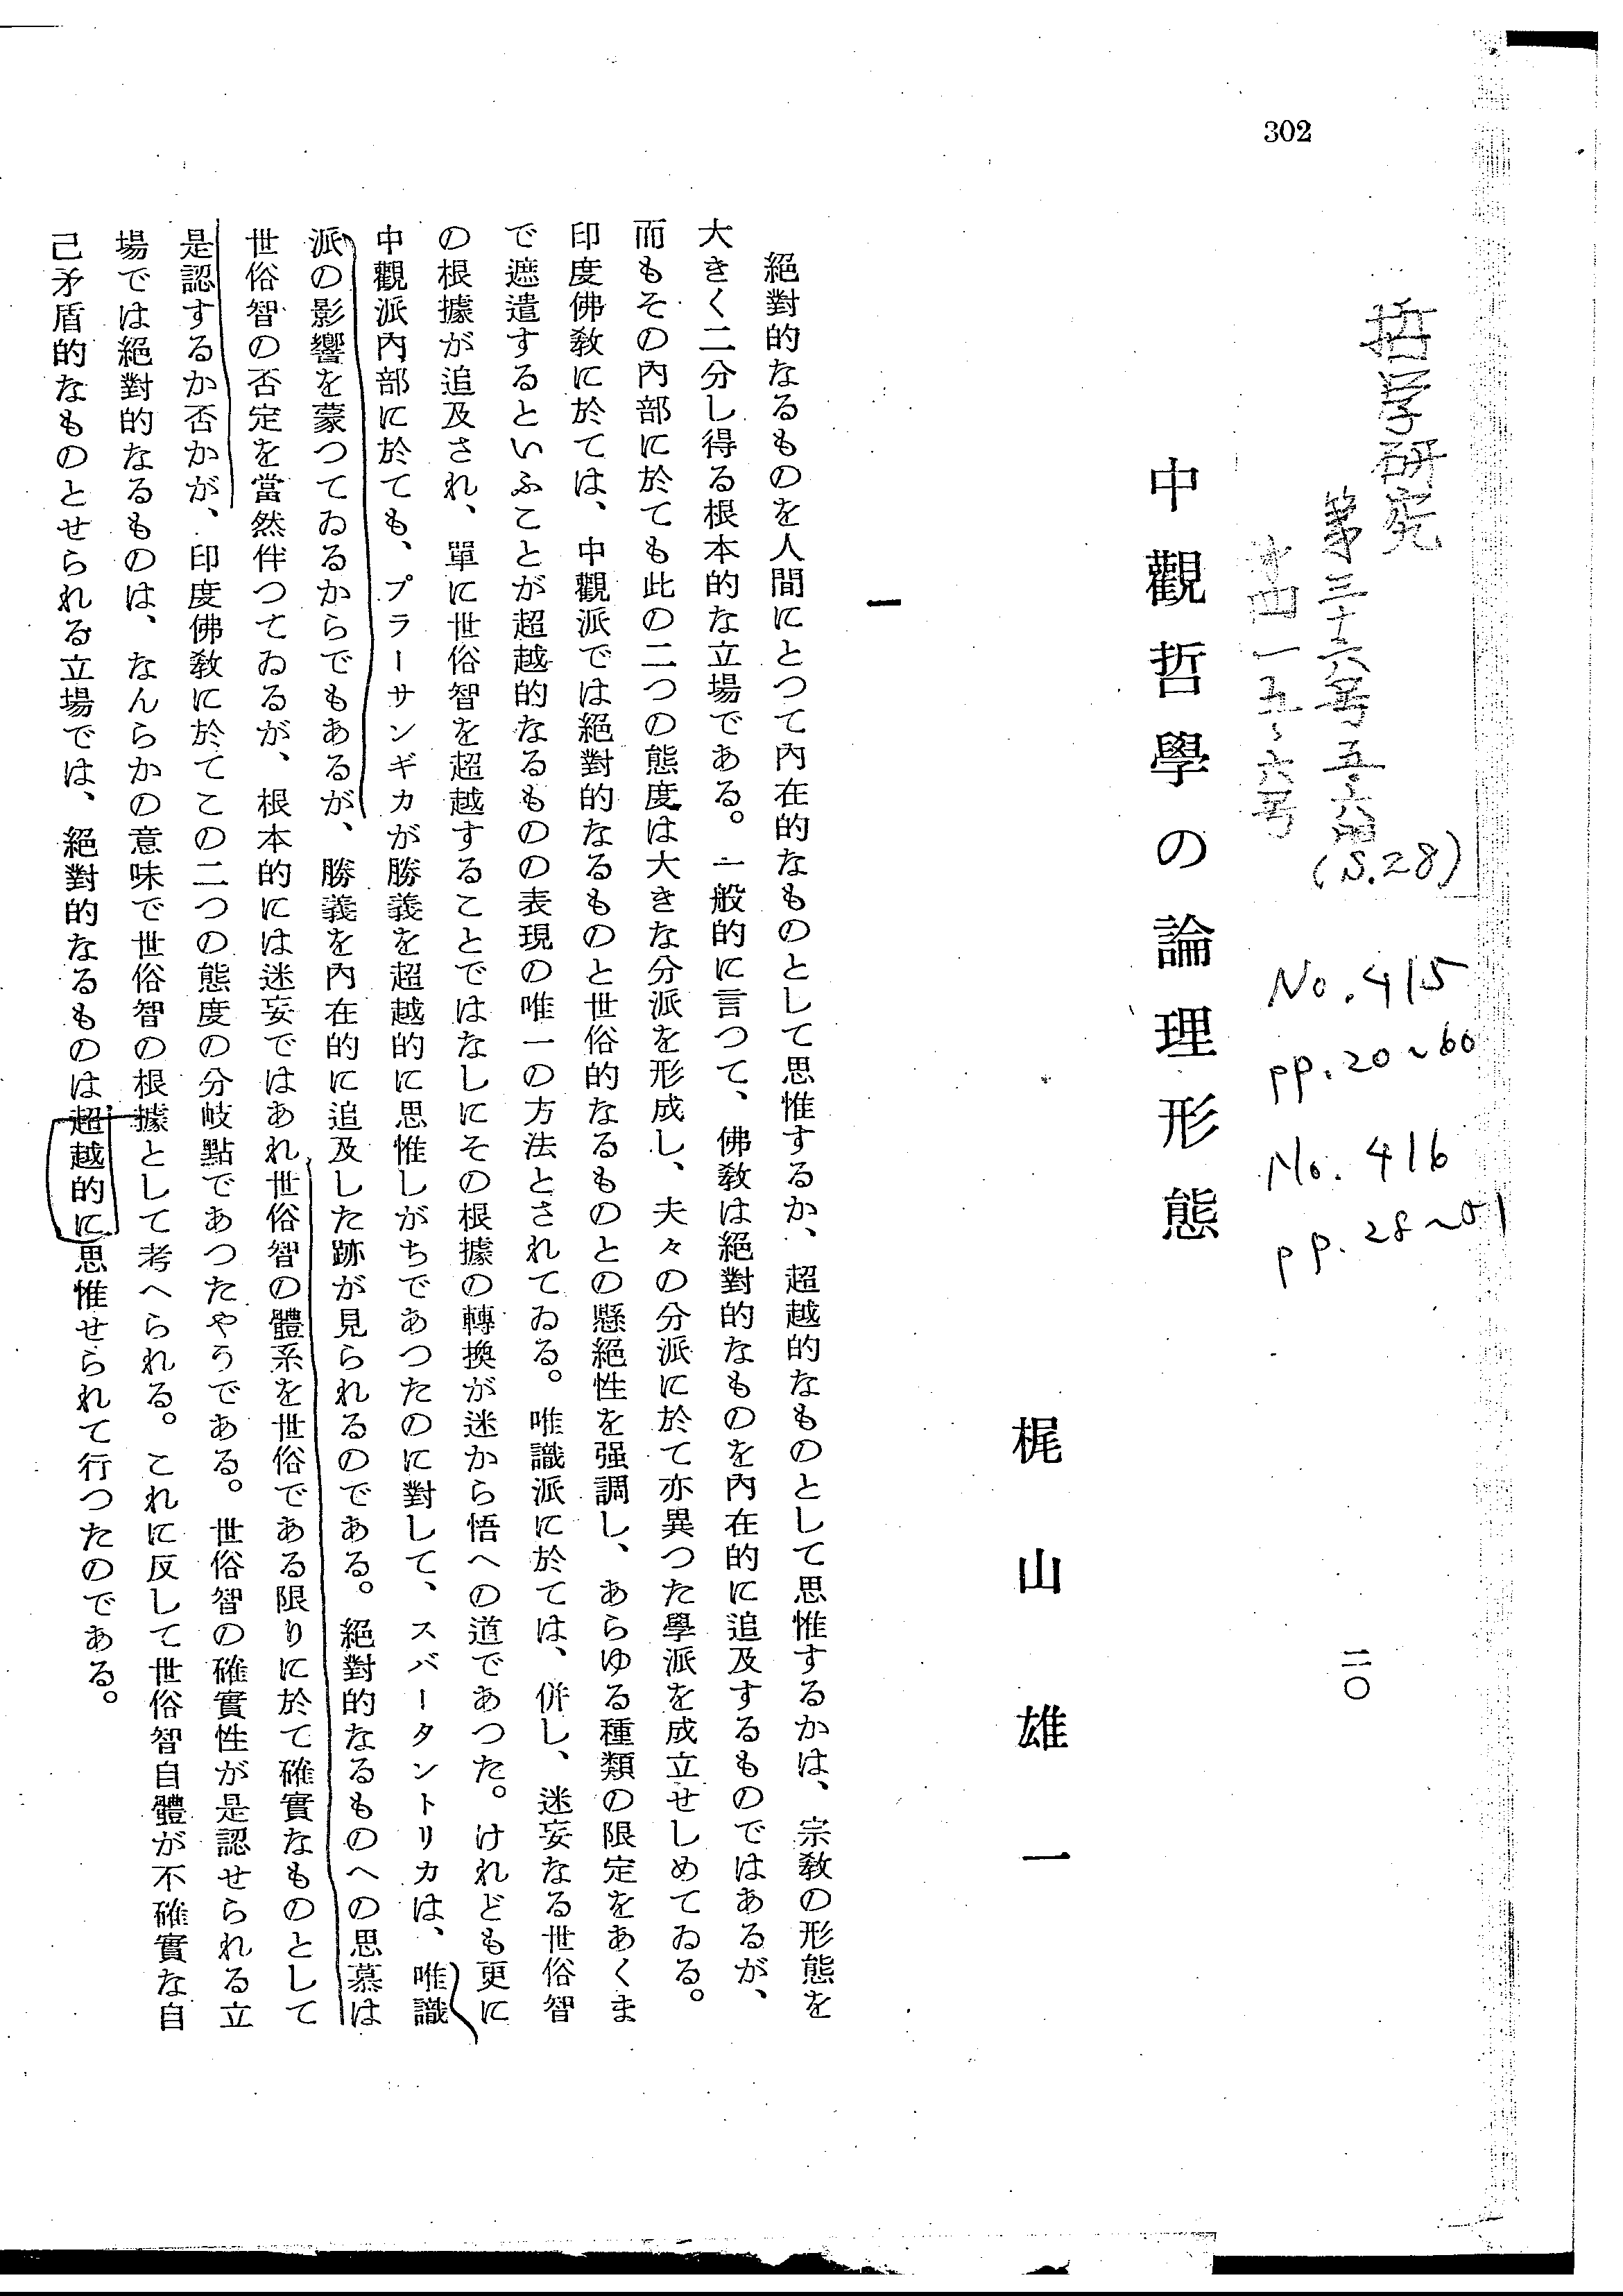 302
哲学研究
第三十六号 五・六冊
(S.28)
四一五、六号
No. 415
pp. 20~60
No. 416
pp. 28~51
二〇
中觀哲學の論理形態
梶山雄一
一
絕對的なるものを人間にとつて內在的なものとして思惟するか、超越的なものとして思惟するかは、宗敎の形態を
大きく二分し得る根本的な立場である。一般的に言つて、佛敎は絕對的なものを內在的に追及するものではあるが、
而もその內部に於ても此の二つの態度は大きな分派を形成し、夫々の分派に於て亦異つた學派を成立せしめてゐる。
印度佛敎に於ては、中觀派では絕對的なるものと世俗的なるものとの懸絕性を强調し、あらゆる種類の限定をあくま
で遮遣するといふことが超越的なるものの表現の唯一の方法とされてゐる。唯識派に於ては、併し、迷妄なる世俗智
の根據が追及され、單に世俗智を超越することではなしにその根據の轉換が迷から悟への道であつた。けれども更に
中觀派內部に於ても、プラーサンギカが勝義を超越的に思惟しがちであつたのに對して、スバータントリカは、唯識
派の影響を蒙つてゐるからでもあるが、勝義を內在的に追及した跡が見られるのである。絕對的なるものへの思慕は
世俗智の否定を當然伴つてゐるが、根本的には迷妄ではあれ世俗智の體系を世俗である限りに於て確實なものとして
是認するか否かが、印度佛敎に於てこの二つの態度の分岐點であつたやうである。世俗智の確實性が是認せられる立
場では絕對的なるものは、なんらかの意味で世俗智の根據として考へられる。これに反して世俗智自體が不確實な自
己矛盾的なものとせられる立場では、絕對的なるものは超越的に思惟せられて行つたのである。